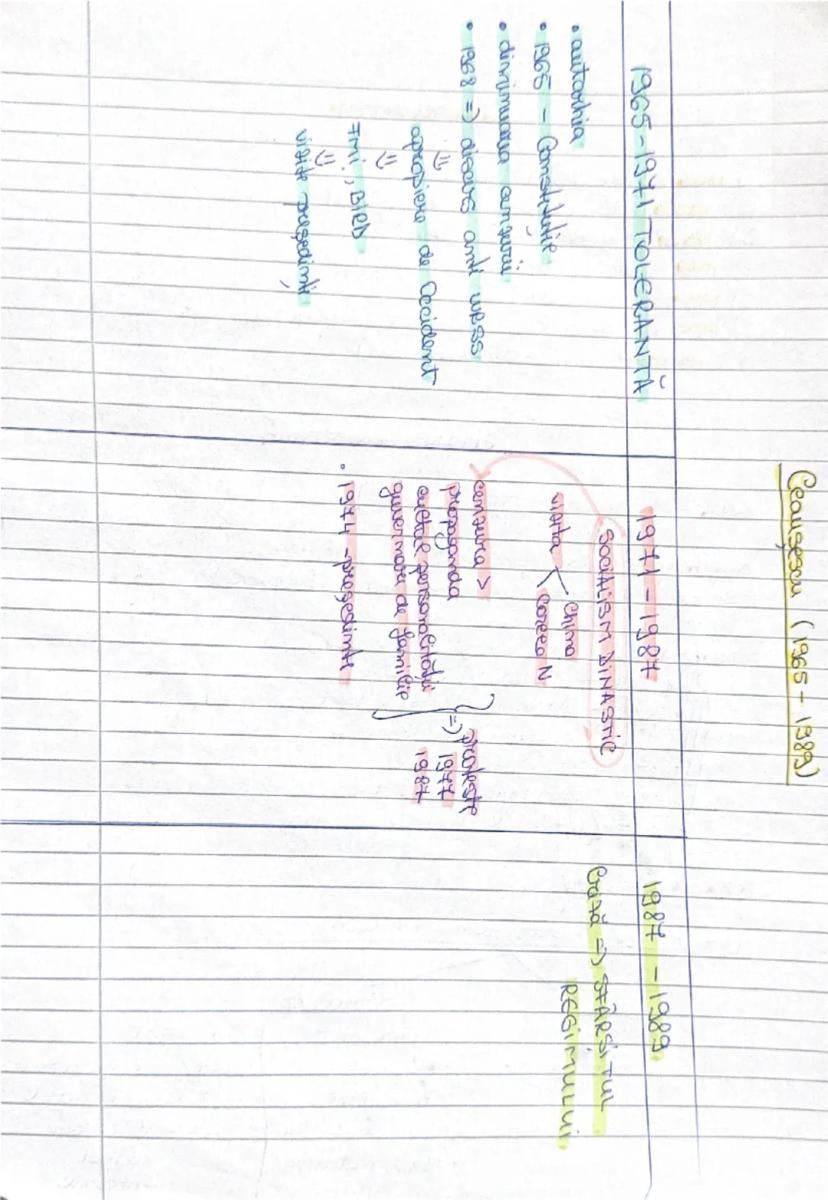 Ceaușescu (1965-1989)
1965-1971 TOLERANTĂ
• autarhia
• 1965 - Constituție
• diminuarea cenzurii
• 1968 => discurs anti URSS
apropiere de Occident
FMI, BIRD
vizite președinți
1971-1987
SOCIALISM DINASTIC
vizita < China
Coreea N
cenzura >
propaganda
cultul personalității
guvernare de familie
=> proteste
1977
1987
• 1974 - președinte
1987-1989
Criză => SFÂRȘITUL
REGIMULUI